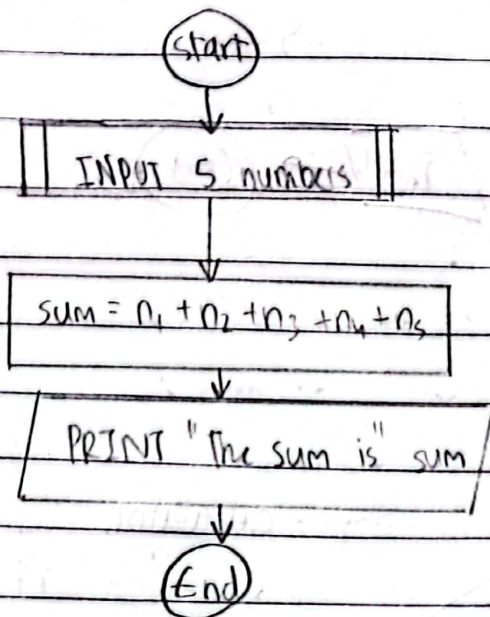 start
INPUT 5 numbers
sum = n₁ + n₂ + n₃ + n₄ + n₅
PRINT "The sum is" sum
End